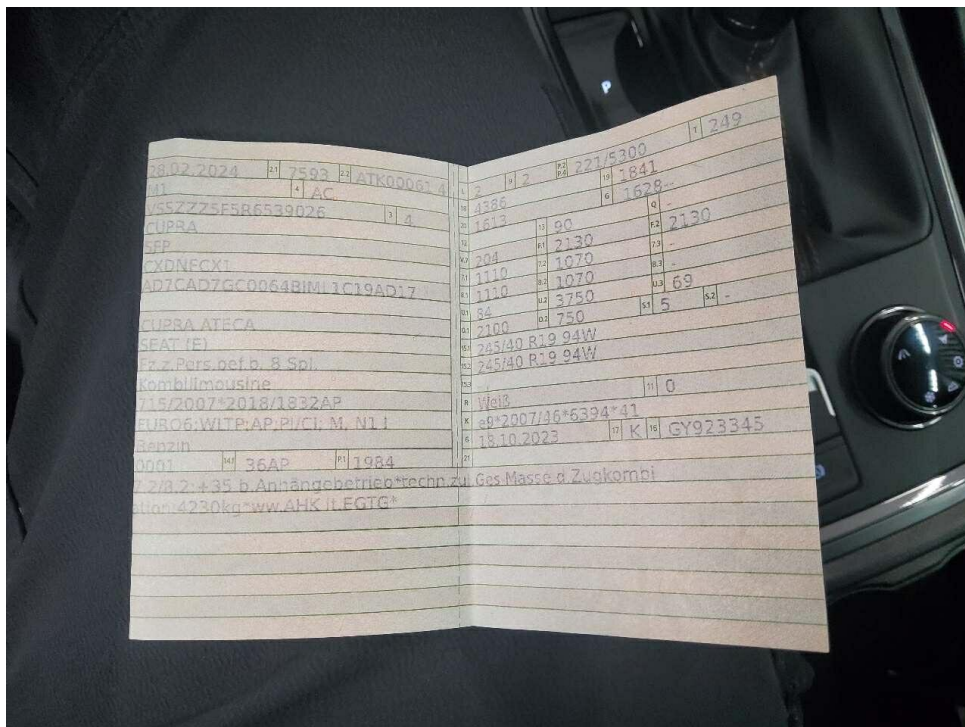 P
28.02.2024 2.1 7593 2.2 ATK00061 4
M1 4 AC
VSSZZZ5FSR6539026 3 4
CUPRA
5FP
CXDNFCX1
AD7CAD7GC0064BIML1C19AD17
CUPRA ATECA
SEAT (E)
Fz.z.Pers.bef.b. 8 Spl.
Kombilimousine
715/2007*2018/1832AP
EURO6;WLTP;AP;PI/CI; M, N1 I
Benzin
0001 14.1 36AP P.1 1984
7.2/8.2:+35 b.Anhängebetrieb*techn.zul.Ges.Masse d.Zugkombi
ation:4230kg*ww.AHK lt.EGTG*
L 2 9 2 P.2 P.4 221/5300 T 249
18 4386 19 1841
20 1613 G 1628--
12 - 13 90 Q -
V.7 204 F.1 2130 F.2 2130
7.1 1110 7.2 1070 7.3 -
8.1 1110 8.2 1070 8.3 -
U.1 84 U.2 3750 U.3 69
O.1 2100 O.2 750 S.1 5 S.2 -
15.1 245/40 R19 94W
15.2 245/40 R19 94W
15.3 -
R Weiß 11 0
K e9*2007/46*6394*41
6 18.10.2023 17 K 16 GY923345
21